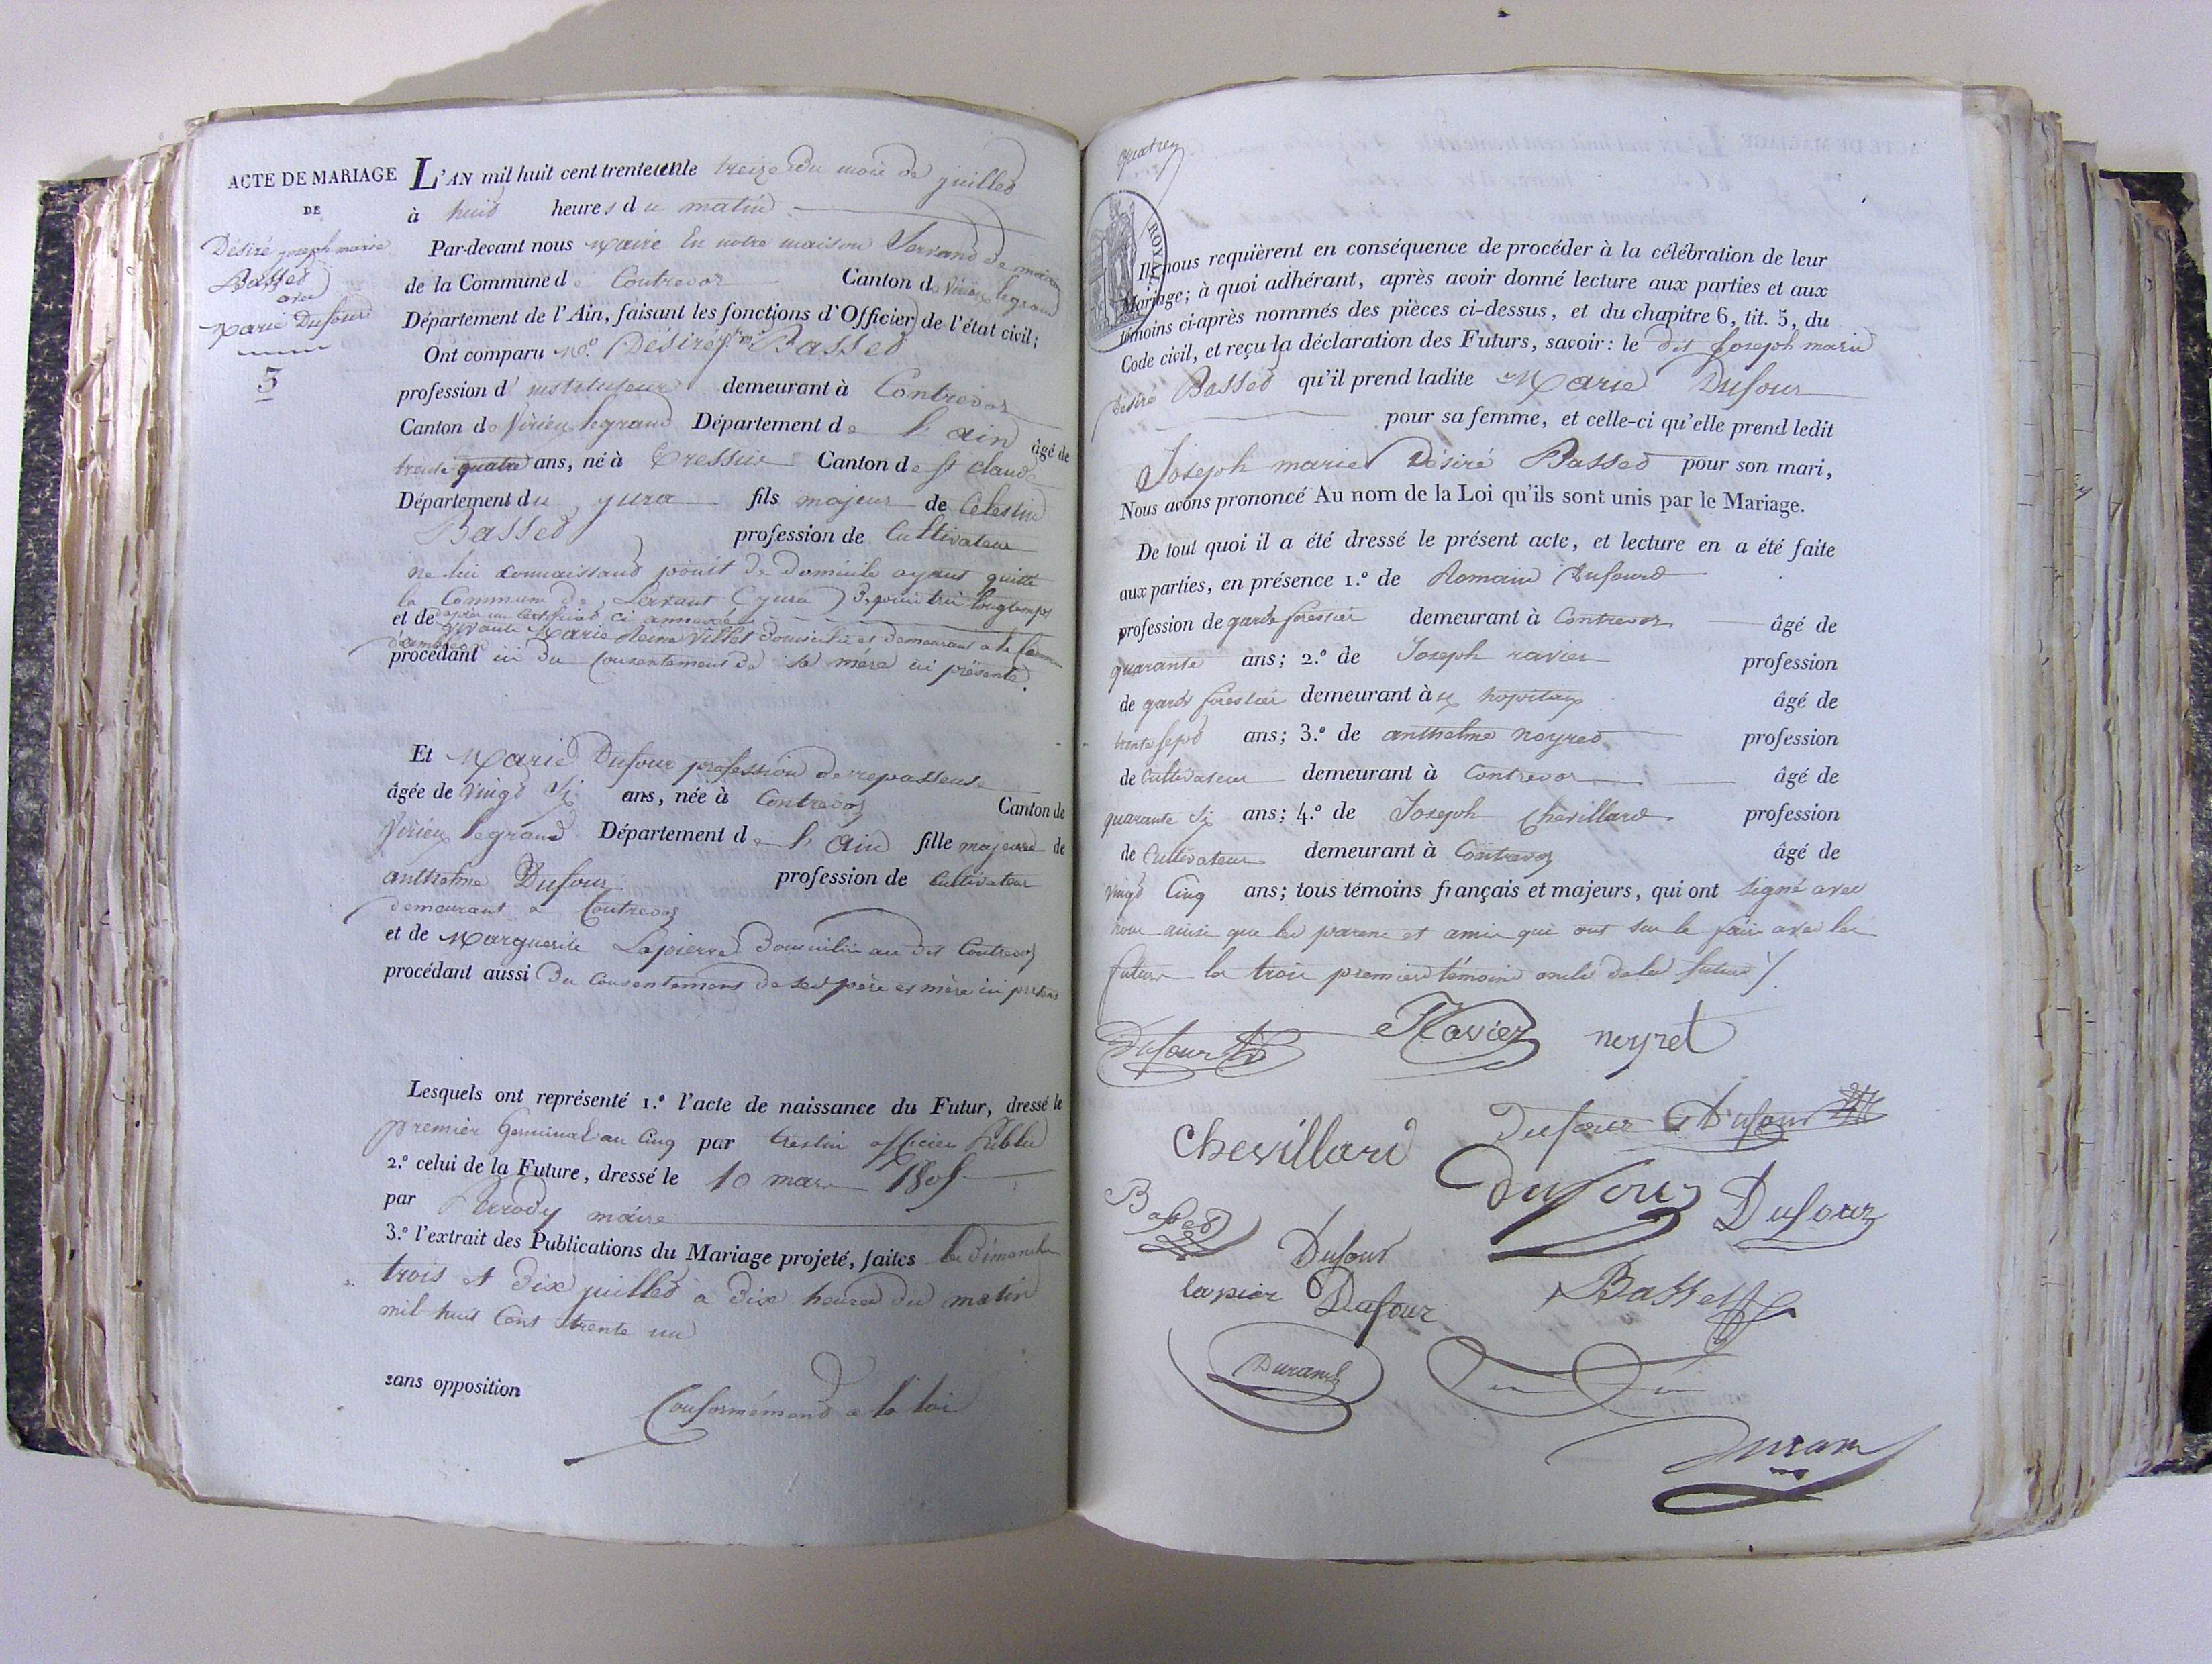 ACTE DE MARIAGE
DE
Désiré joseph marie
Basset
avec
Marie Dufour
3
L'AN mil huit cent trente un le treize du mois de juillet
à huit heures du matin
Par-devant nous Maire En notre maison Servant de mairie
de la Commune de Contrevoz Canton de Virieu legrand
Département de l'Ain, faisant les fonctions d'Officier de l'état civil;
Ont comparu Désiré jh mie Basset
profession d'instituteur demeurant à Contrevoz
Canton de Virieu legrand Département de l'ain âgé de
trente quatre ans, né à Cressia Canton de St claude
Département du jura fils majeur de Célestin
Basset profession de Cultivateur
ne lui connaissant point de domicile ayant quitté
la Commune de (jura) Depuis très longtemps
d'après un certificat ci annexé
et de vivante Marie Reine Villet domiciliée et demeurant
procédant ici du consentement de sa mère ici présente.
Et Marie Dufour profession de repasseuse
âgée de vingt six ans, née à Contrevoz Canton de
Virieu legrand Département de l'Ain fille majeure de
anthelme Dufour profession de cultivateur
demeurant à Contrevoz
et de Marguerite Lapierre domiciliée au dit Contrevoz
procédant aussi du consentement de ses père et mère ici présens
Lesquels ont représenté 1.º l'acte de naissance du Futur, dressé le
premier Germinal an Cinq par officier Public
2.º celui de la Future, dressé le 10 mars 1805
par Perrody maire
3.º l'extrait des Publications du Mariage projeté, faites les dimanches
trois et dix juillet à dix heures du matin
mil huit Cent trente un
sans opposition
Conformément à la loi
ROYAL
Ils nous requièrent en conséquence de procéder à la célébration de leur
Mariage; à quoi adhérant, après avoir donné lecture aux parties et aux
témoins ci-après nommés des pièces ci-dessus, et du chapitre 6, tit. 5, du
Code civil, et reçu la déclaration des Futurs, savoir: le dit Joseph marie
désiré Basset qu'il prend ladite Marie Dufour
pour sa femme, et celle-ci qu'elle prend ledit
Joseph marie Désiré Basset pour son mari,
Nous avons prononcé Au nom de la Loi qu'ils sont unis par le Mariage.
De tout quoi il a été dressé le présent acte, et lecture en a été faite
aux parties, en présence 1.º de Romain Dufour
profession de garde forestier demeurant à Contrevoz âgé de
quarante ans; 2.º de Joseph ravier profession
de garde forestier demeurant à hopitaux âgé de
trente sept ans; 3.º de anthelme neyret profession
de Cultivateur demeurant à Contrevoz âgé de
quarante six ans; 4.º de Joseph Chevillard profession
de Cultivateur demeurant à Contrevoz âgé de
vingt Cinq ans; tous témoins français et majeurs, qui ont signé avec
nous ainsi que les parens et amis qui ont su le faire avec les
futurs les trois premiers témoins oncles de la future ./.
Dufour Ravier neyret
Chevillard Dufour Dufour
Dufour Dufour
Basset
Dufour
lapier Dufour Basset
Durand